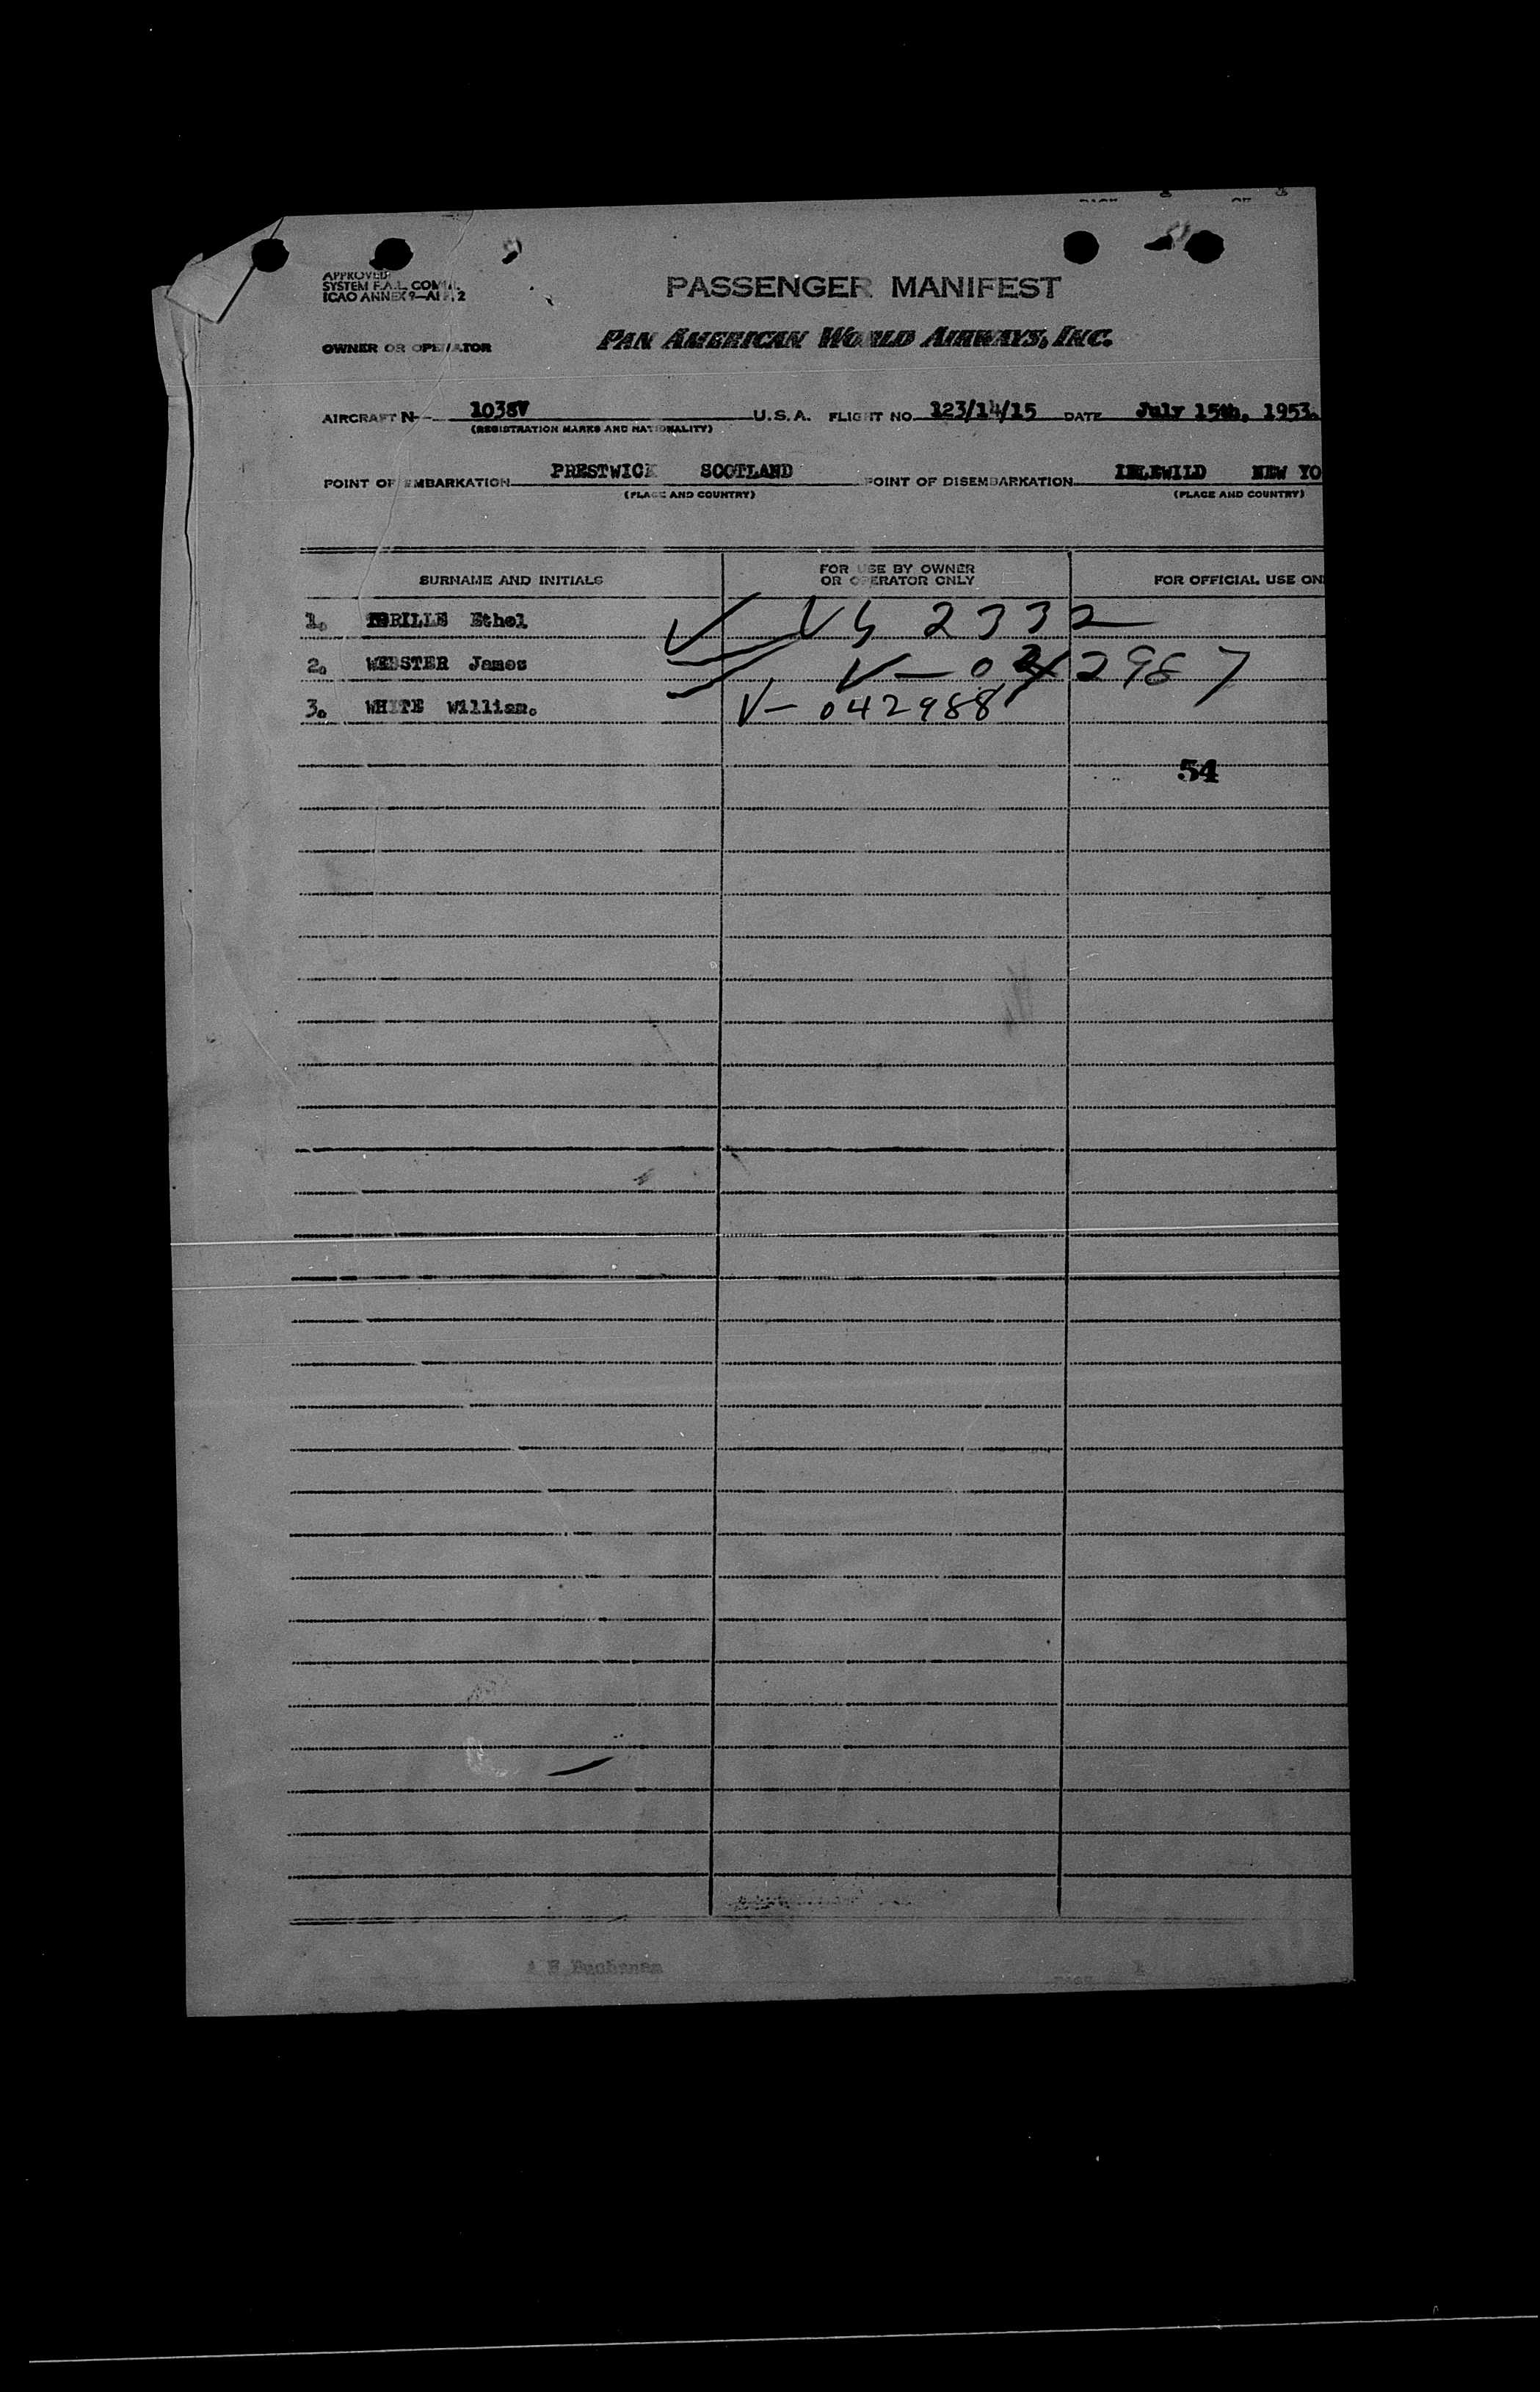 PAGE 1 OF 1
APPROVED
SYSTEM F.A.L. COMM.
ICAO ANNEX 9—APP. 2
PASSENGER MANIFEST
OWNER OR OPERATOR PAN AMERICAN WORLD AIRWAYS, INC.
AIRCRAFT N— 1038V U.S.A. FLIGHT NO. 123/14/15 DATE July 15th, 1953.
(REGISTRATION MARKS AND NATIONALITY)
POINT OF EMBARKATION PRESTWICK SCOTLAND POINT OF DISEMBARKATION IDLEWILD NEW YO
(PLACE AND COUNTRY) (PLACE AND COUNTRY)
SURNAME AND INITIALS FOR USE BY OWNER OR OPERATOR ONLY FOR OFFICIAL USE ON
1. Ethel 2332
2. WEBSTER James V-042987
3. WHITE William. V-042988
54
A E Buchanan
PAGE 1 OF